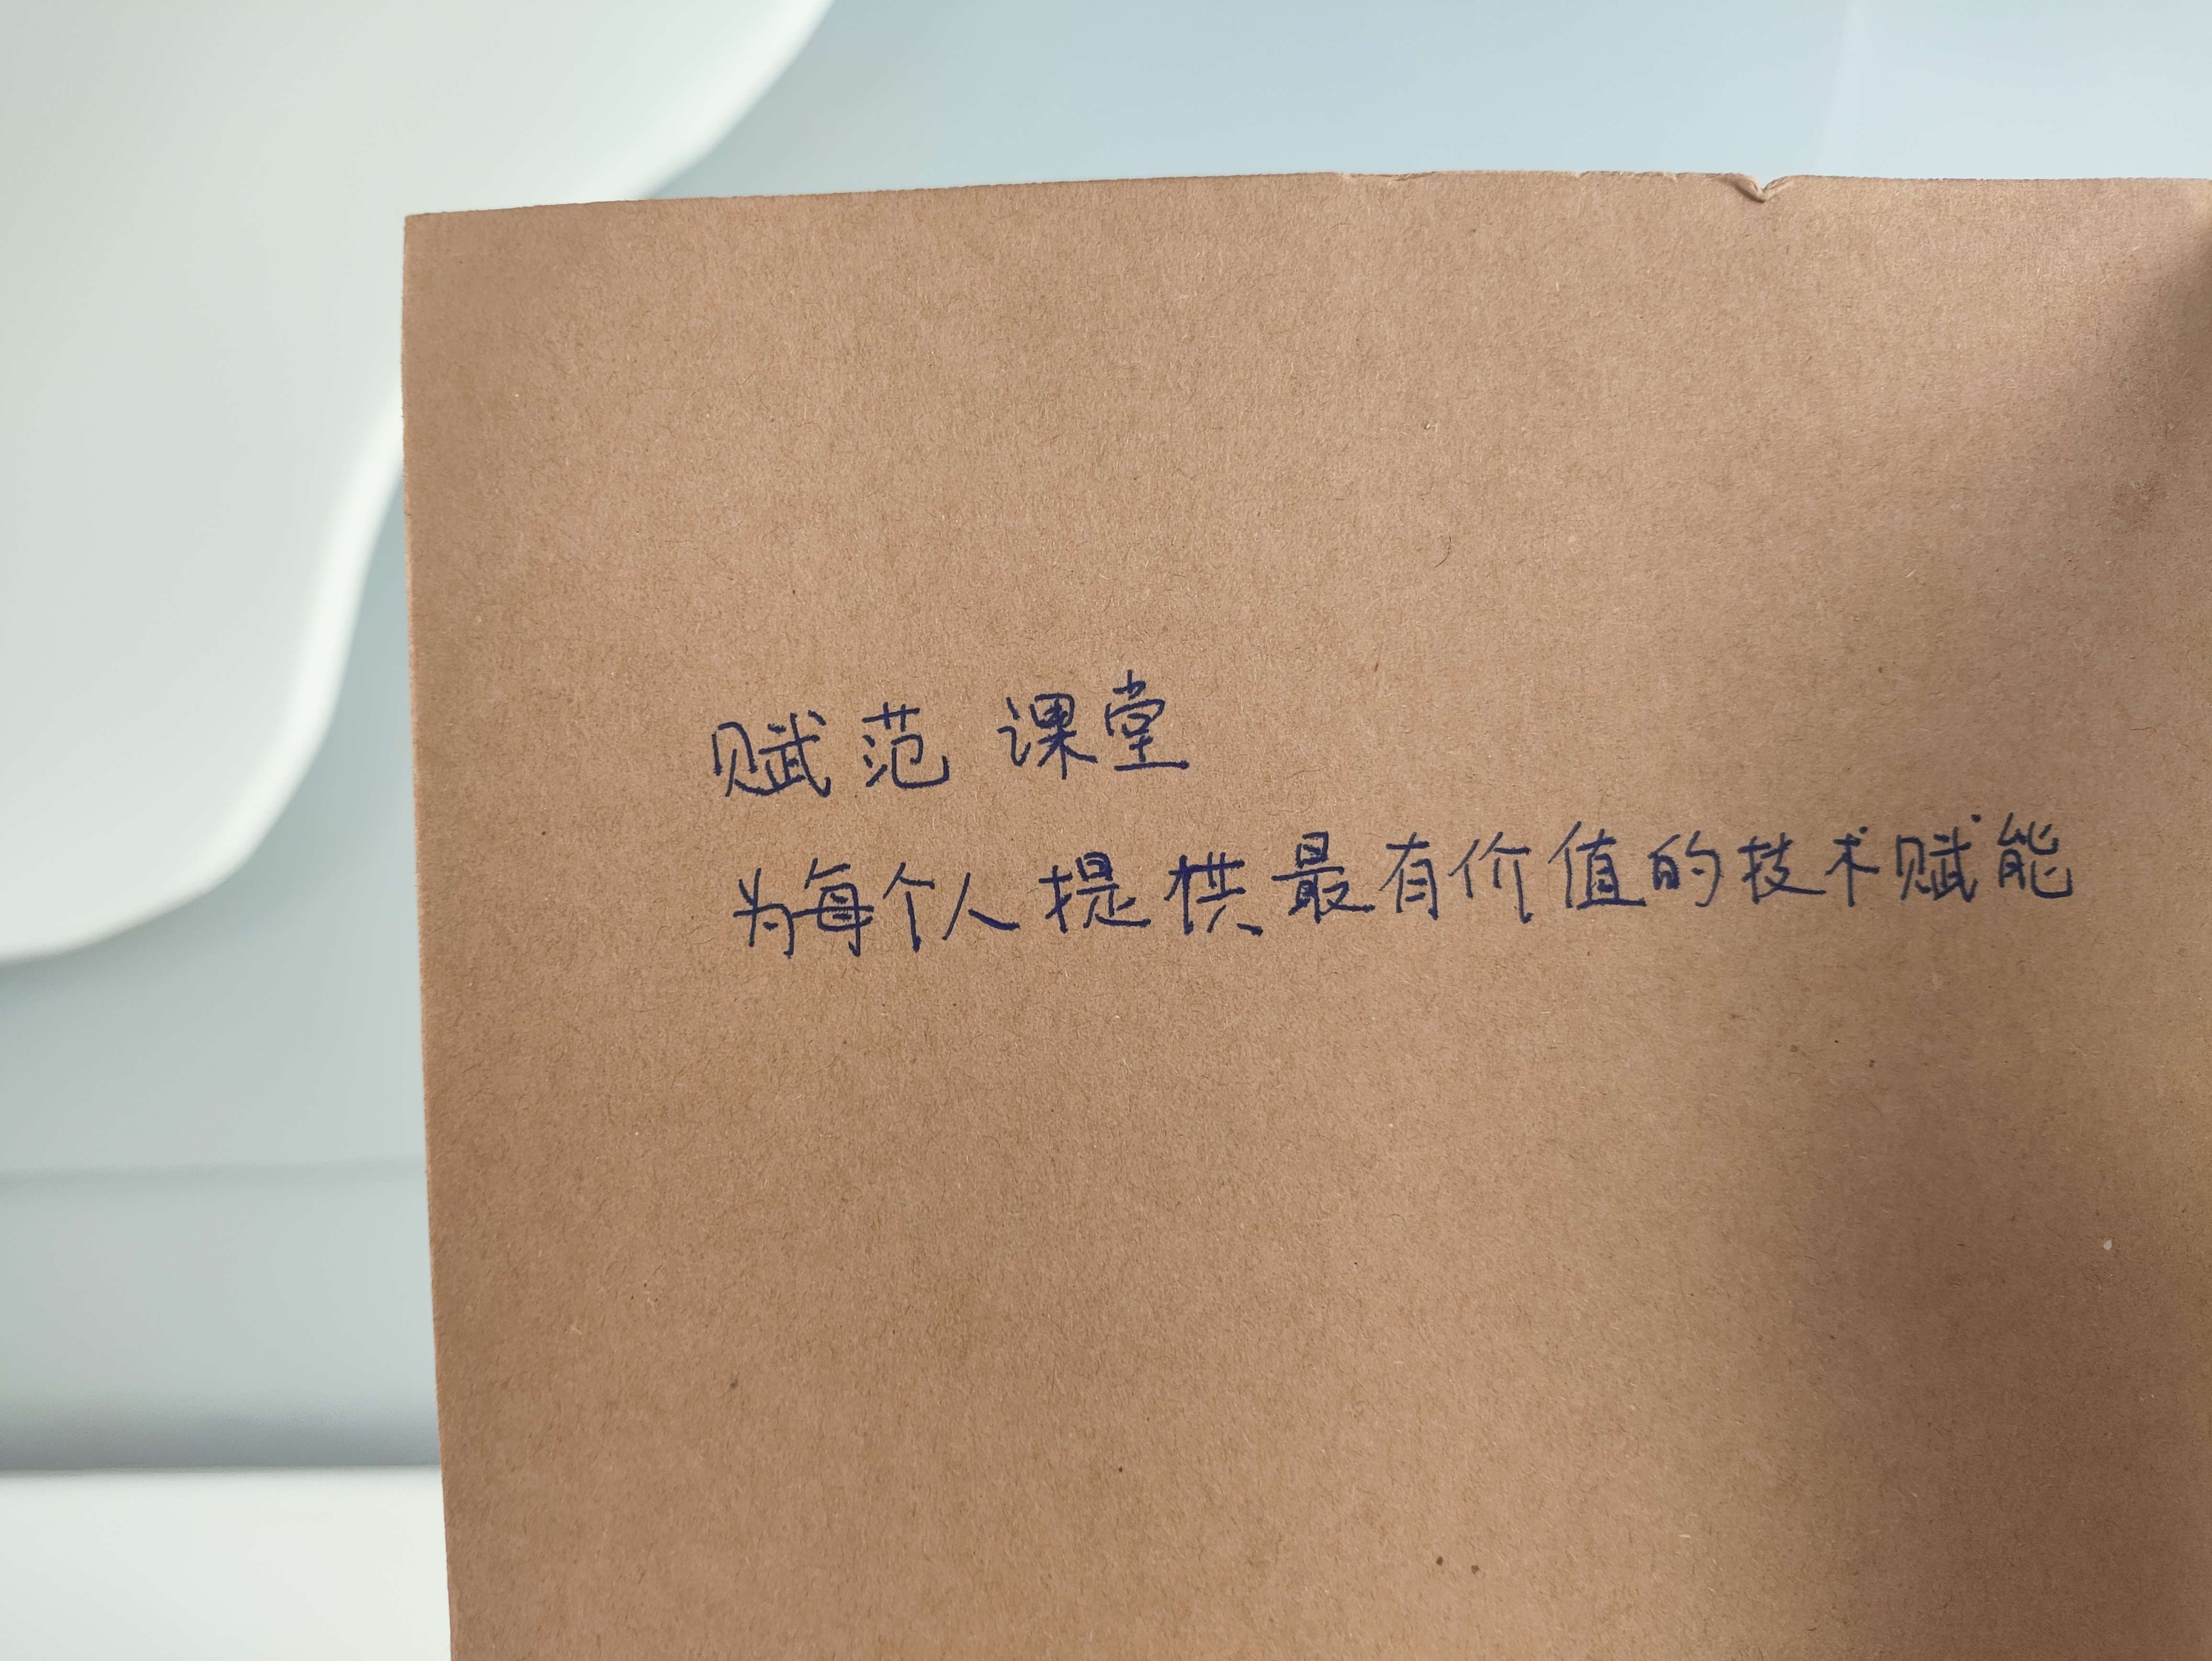 赋范课堂
为每个人提供最有价值的技术赋能